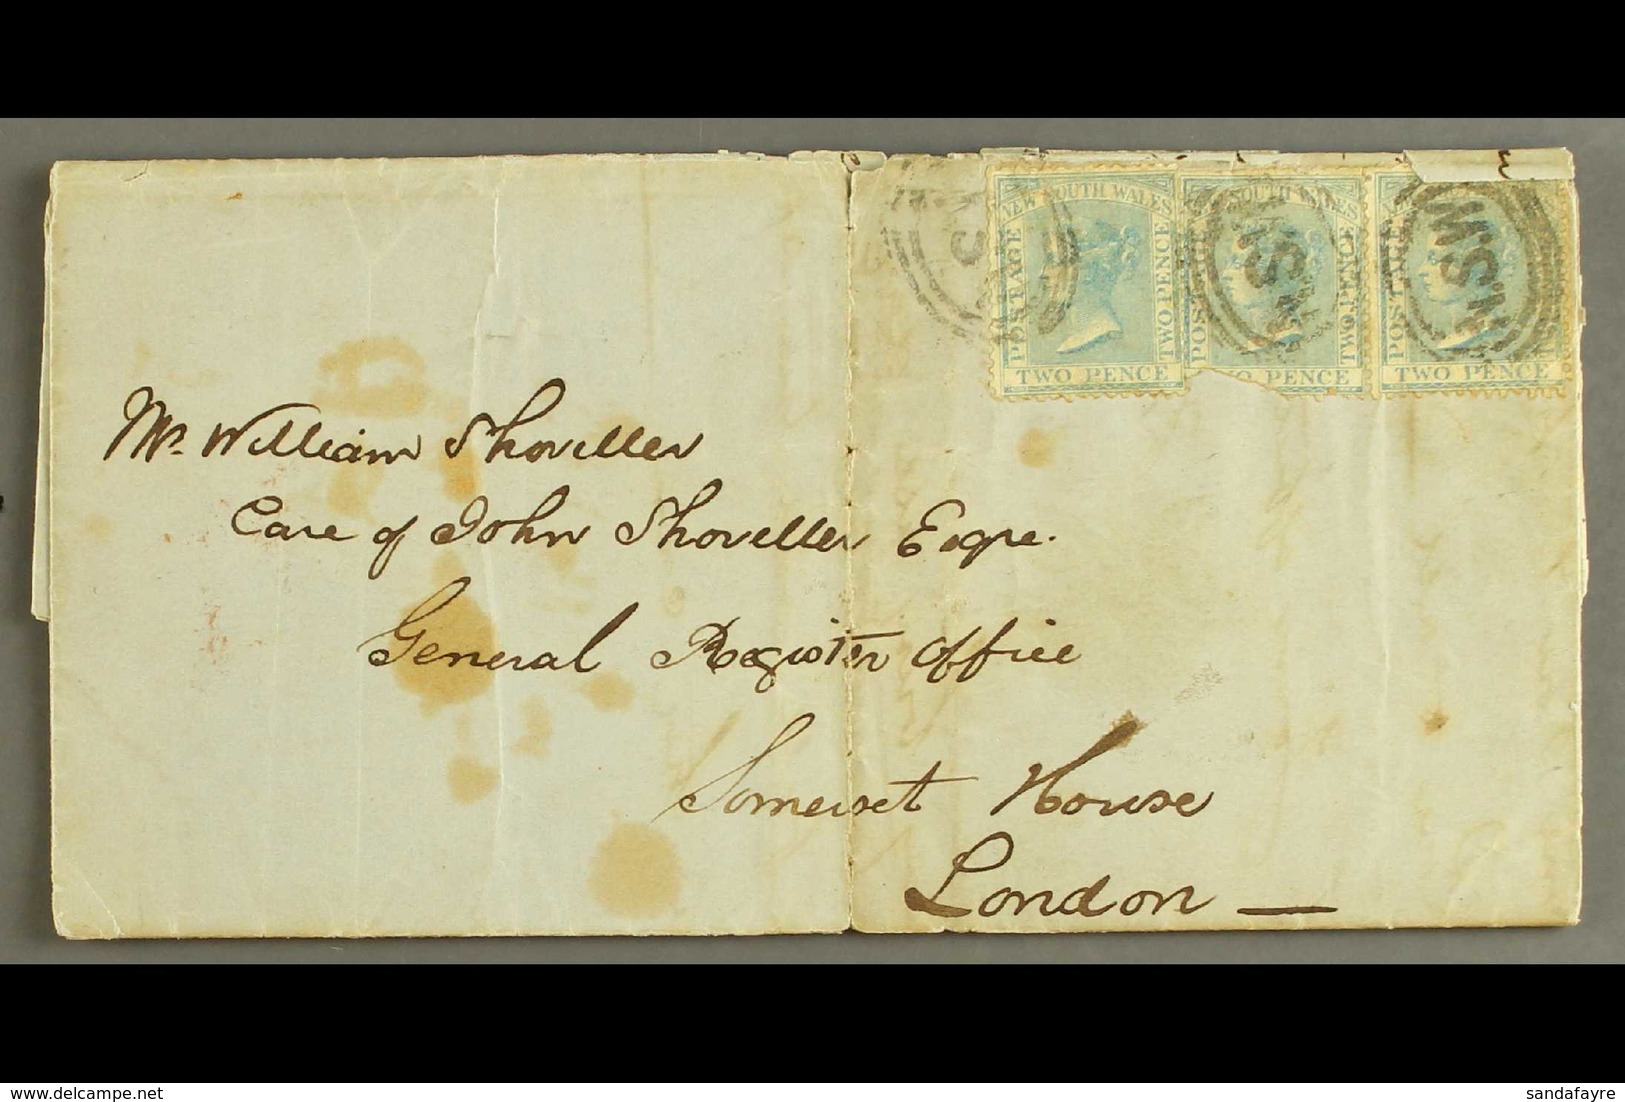 NEW SOUTH WALES
POSTAGE
TWO PENCE
TWO PENCE
SOUTH WALES
TWO PENCE
PENCE
N.S.W
TWO PENCE
N.S.W
Mr. William Shoveller
Care of John Shoveller Esqre.
General Register Office
Somerset House
London —
© Delcampe.net
sandafayre